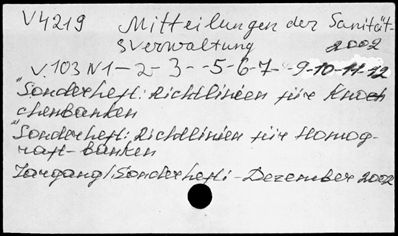 V4219 Mitteilungen der Sanität-
sverwaltung 2002
v.103 N1-2-3--5-6-7--9-10-11-12
"Sonderheft: Richtlinien für Knoch
chenbanken
"Sonderheft: Richtlinien für Homog-
raft-banken
Jargang/Sonderheft: -Dezember 2002